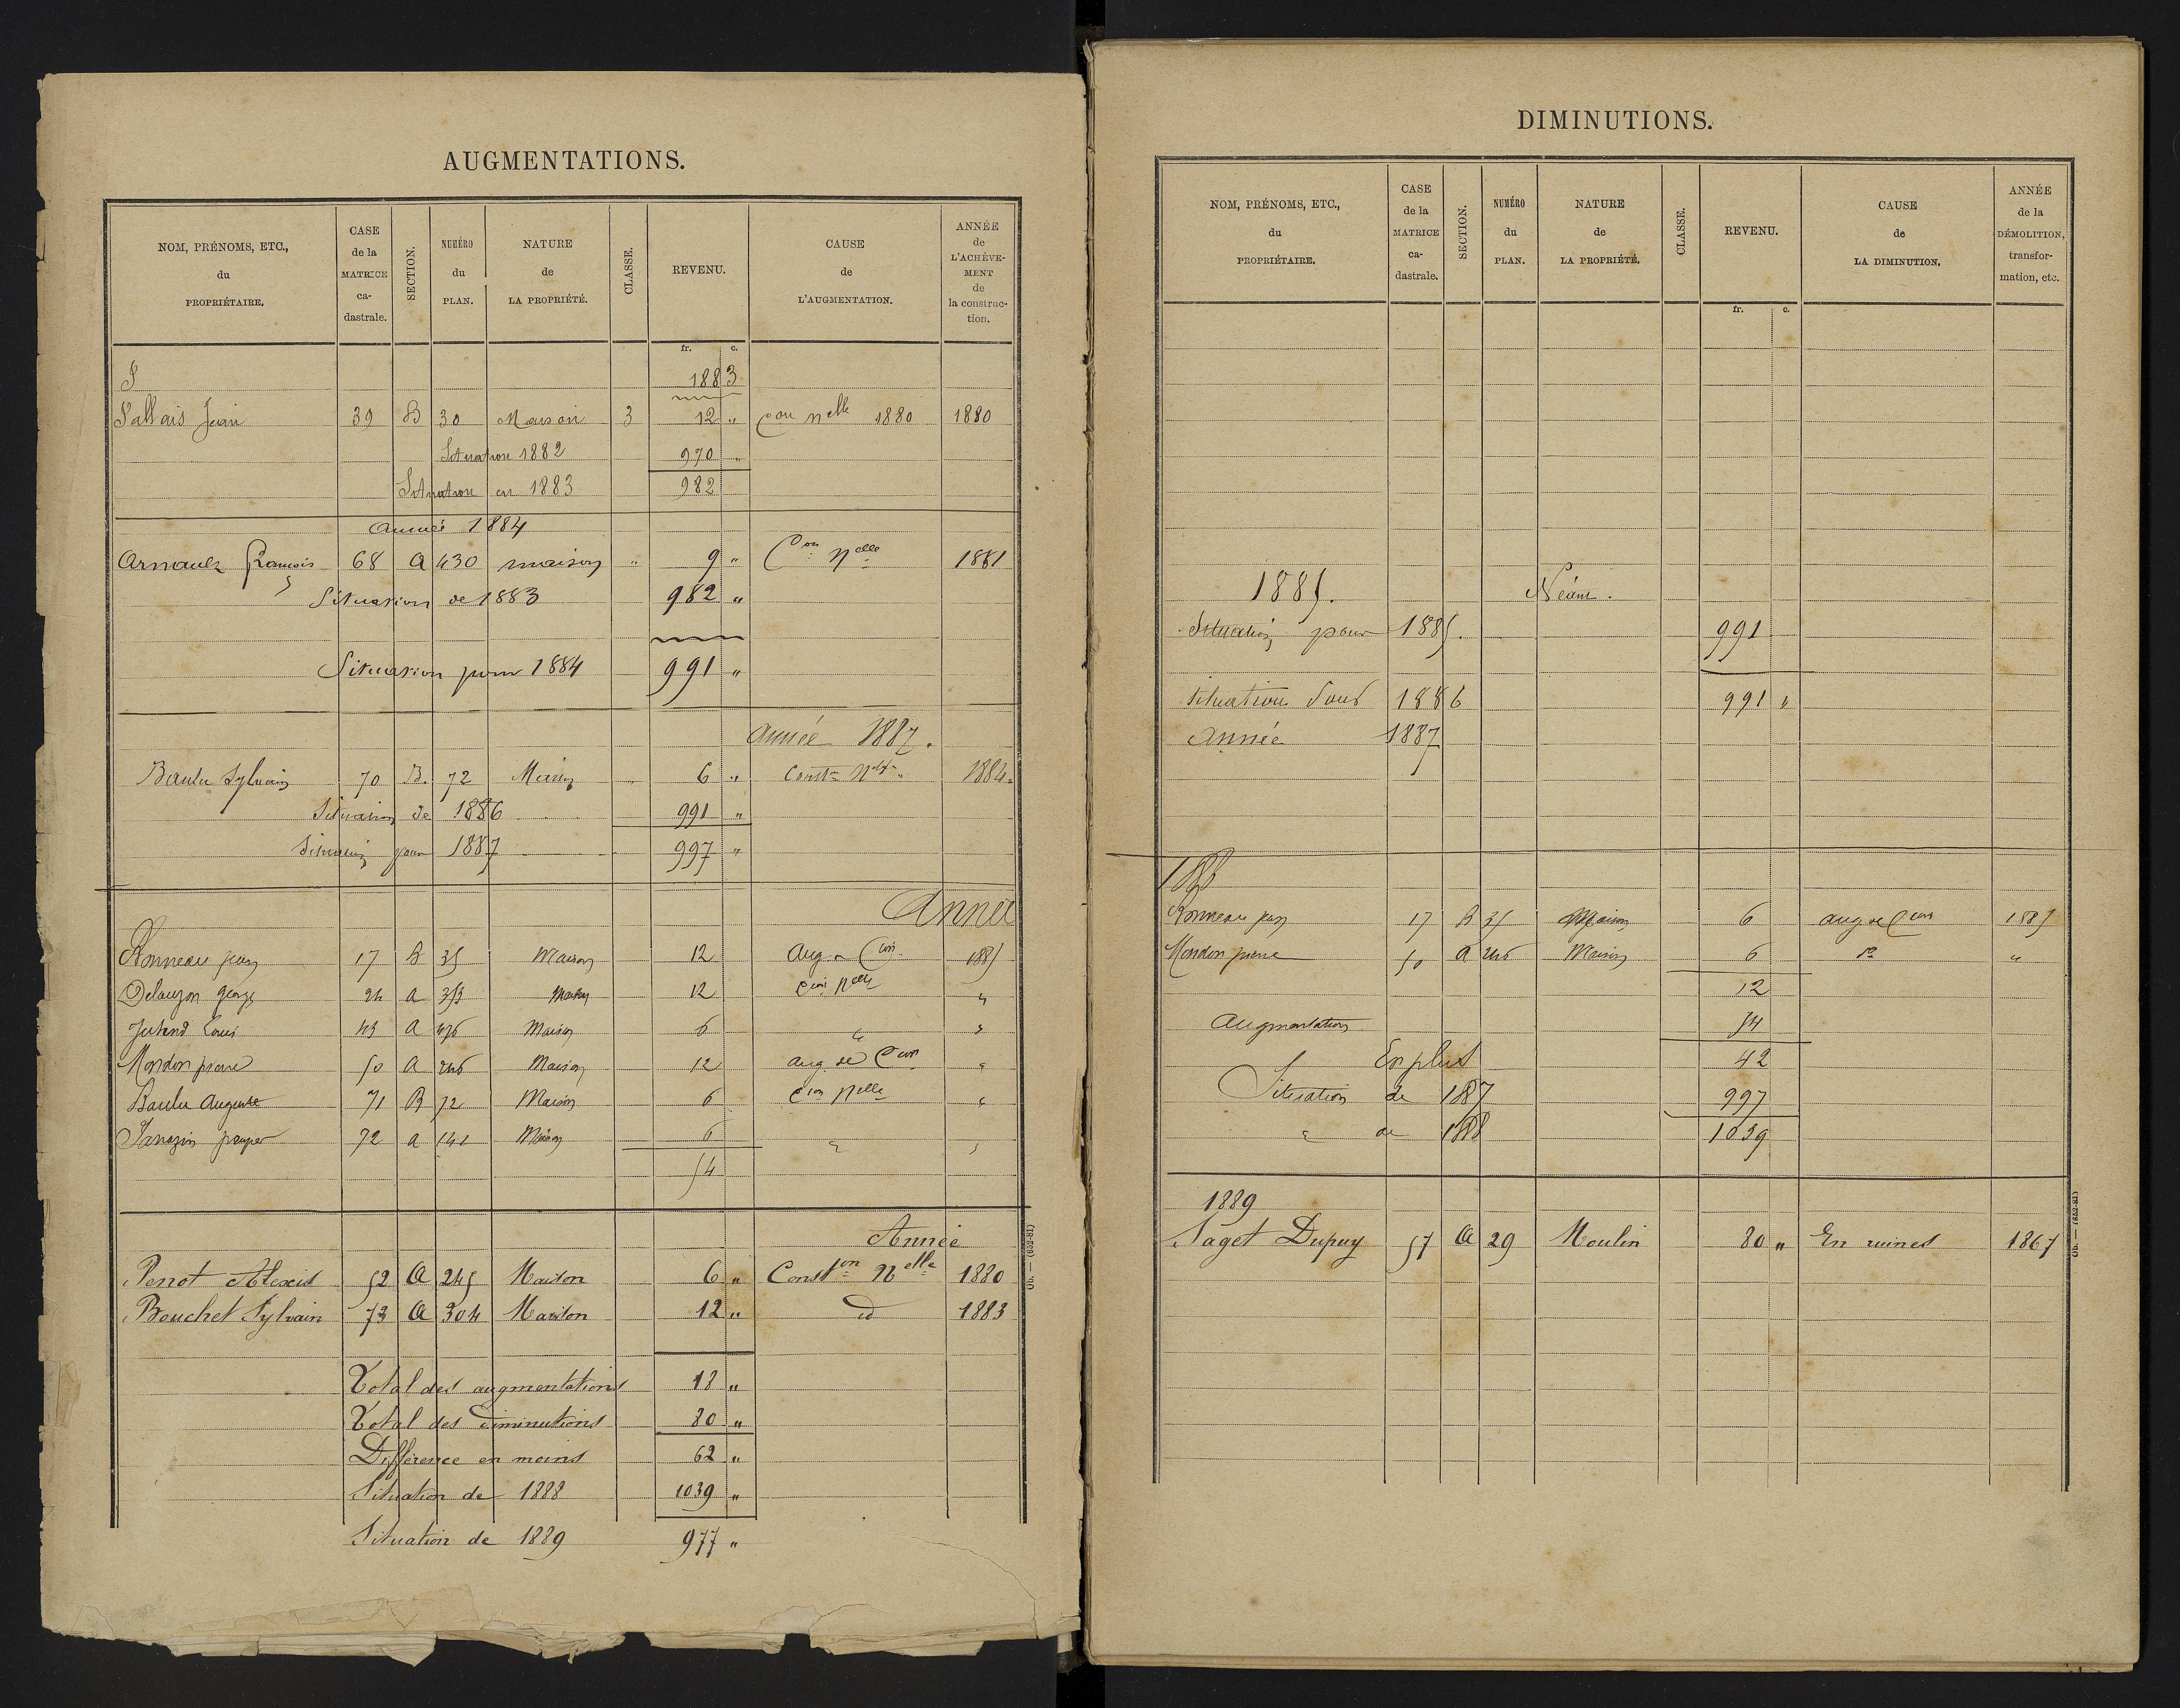 AUGMENTATIONS.
NOM, PRÉNOMS, ETC., du PROPRIÉTAIRE. | CASE de la MATRICE ca- dastrale. | SECTION. | NUMÉRO du PLAN. | NATURE de LA PROPRIÉTÉ. | CLASSE. | REVENU. | CAUSE de L'AUGMENTATION. | ANNÉE de L'ACHÈVE- MENT de la construc- tion.
fr. c.
1883
Jean 39 B 30 Maison 3 12 " Con nelle 1880 1880
Situation 1882 970 "
Situation en 1883 982
Année 1884
Arnault François 68 A 430 maison " 9 " Con nelle 1881
Situation de 1883 982 "
Situation pour 1884 991 "
année 1887.
Baulu Sylvain 70 B. 72 Maison " 6 " Const n 1884.
Situation de 1886 991 "
Situation pour 1887 997 "
Année
Bonneau 17 B 35 Maison 12 Aug. Con 1885
Delauzon 24 A Maison 12 Con nelle "
Louis 43 A Maison 6 " "
Mondon pierre 50 A 246 Maison 12 aug. de Con "
Baulu Auguste 71 B 72 Maison 6 Con nelle "
72 A 141 Maison 6 " "
54
Année
Perrot Alexis 52 A 245 Maison 6 " Conston Nelle 1880
Bouchet Sylvain 73 A 304 Maison 12 " id 1883
Total des augmentations 18 "
Total des diminutions 80 "
Différence en moins 62 "
Situation de 1888 1039 "
Situation de 1889 977 "
Ob. — (652-81)
DIMINUTIONS.
NOM, PRÉNOMS, ETC., du PROPRIÉTAIRE. | CASE de la MATRICE ca- dastrale. | SECTION. | NUMÉRO du PLAN. | NATURE de LA PROPRIÉTÉ. | CLASSE. | REVENU. | CAUSE de LA DIMINUTION. | ANNÉE de la DÉMOLITION, transfor- mation, etc.
fr. c.
1885. Néant.
Situation pour 1885. 991
Situation pour 1886 991 "
Année 1887
1888
Bonneau 17 B 35 Maison 6 aug de Con 1885
Mondon pierre 50 A 246 Maison 6 do "
12
Augmentation 54
En plus 42
Situation de 1887 997
" de 1888 1039
1889
Saget Dupuy 57 A 29 Moulin 80 " En ruines 1867
Ob. — (652-81)